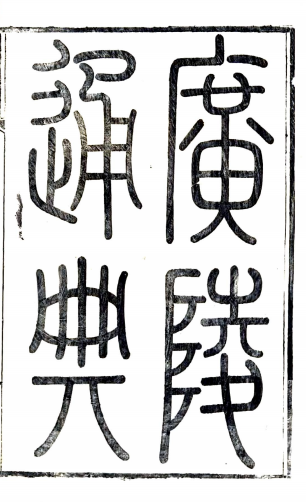 廣陵
通典